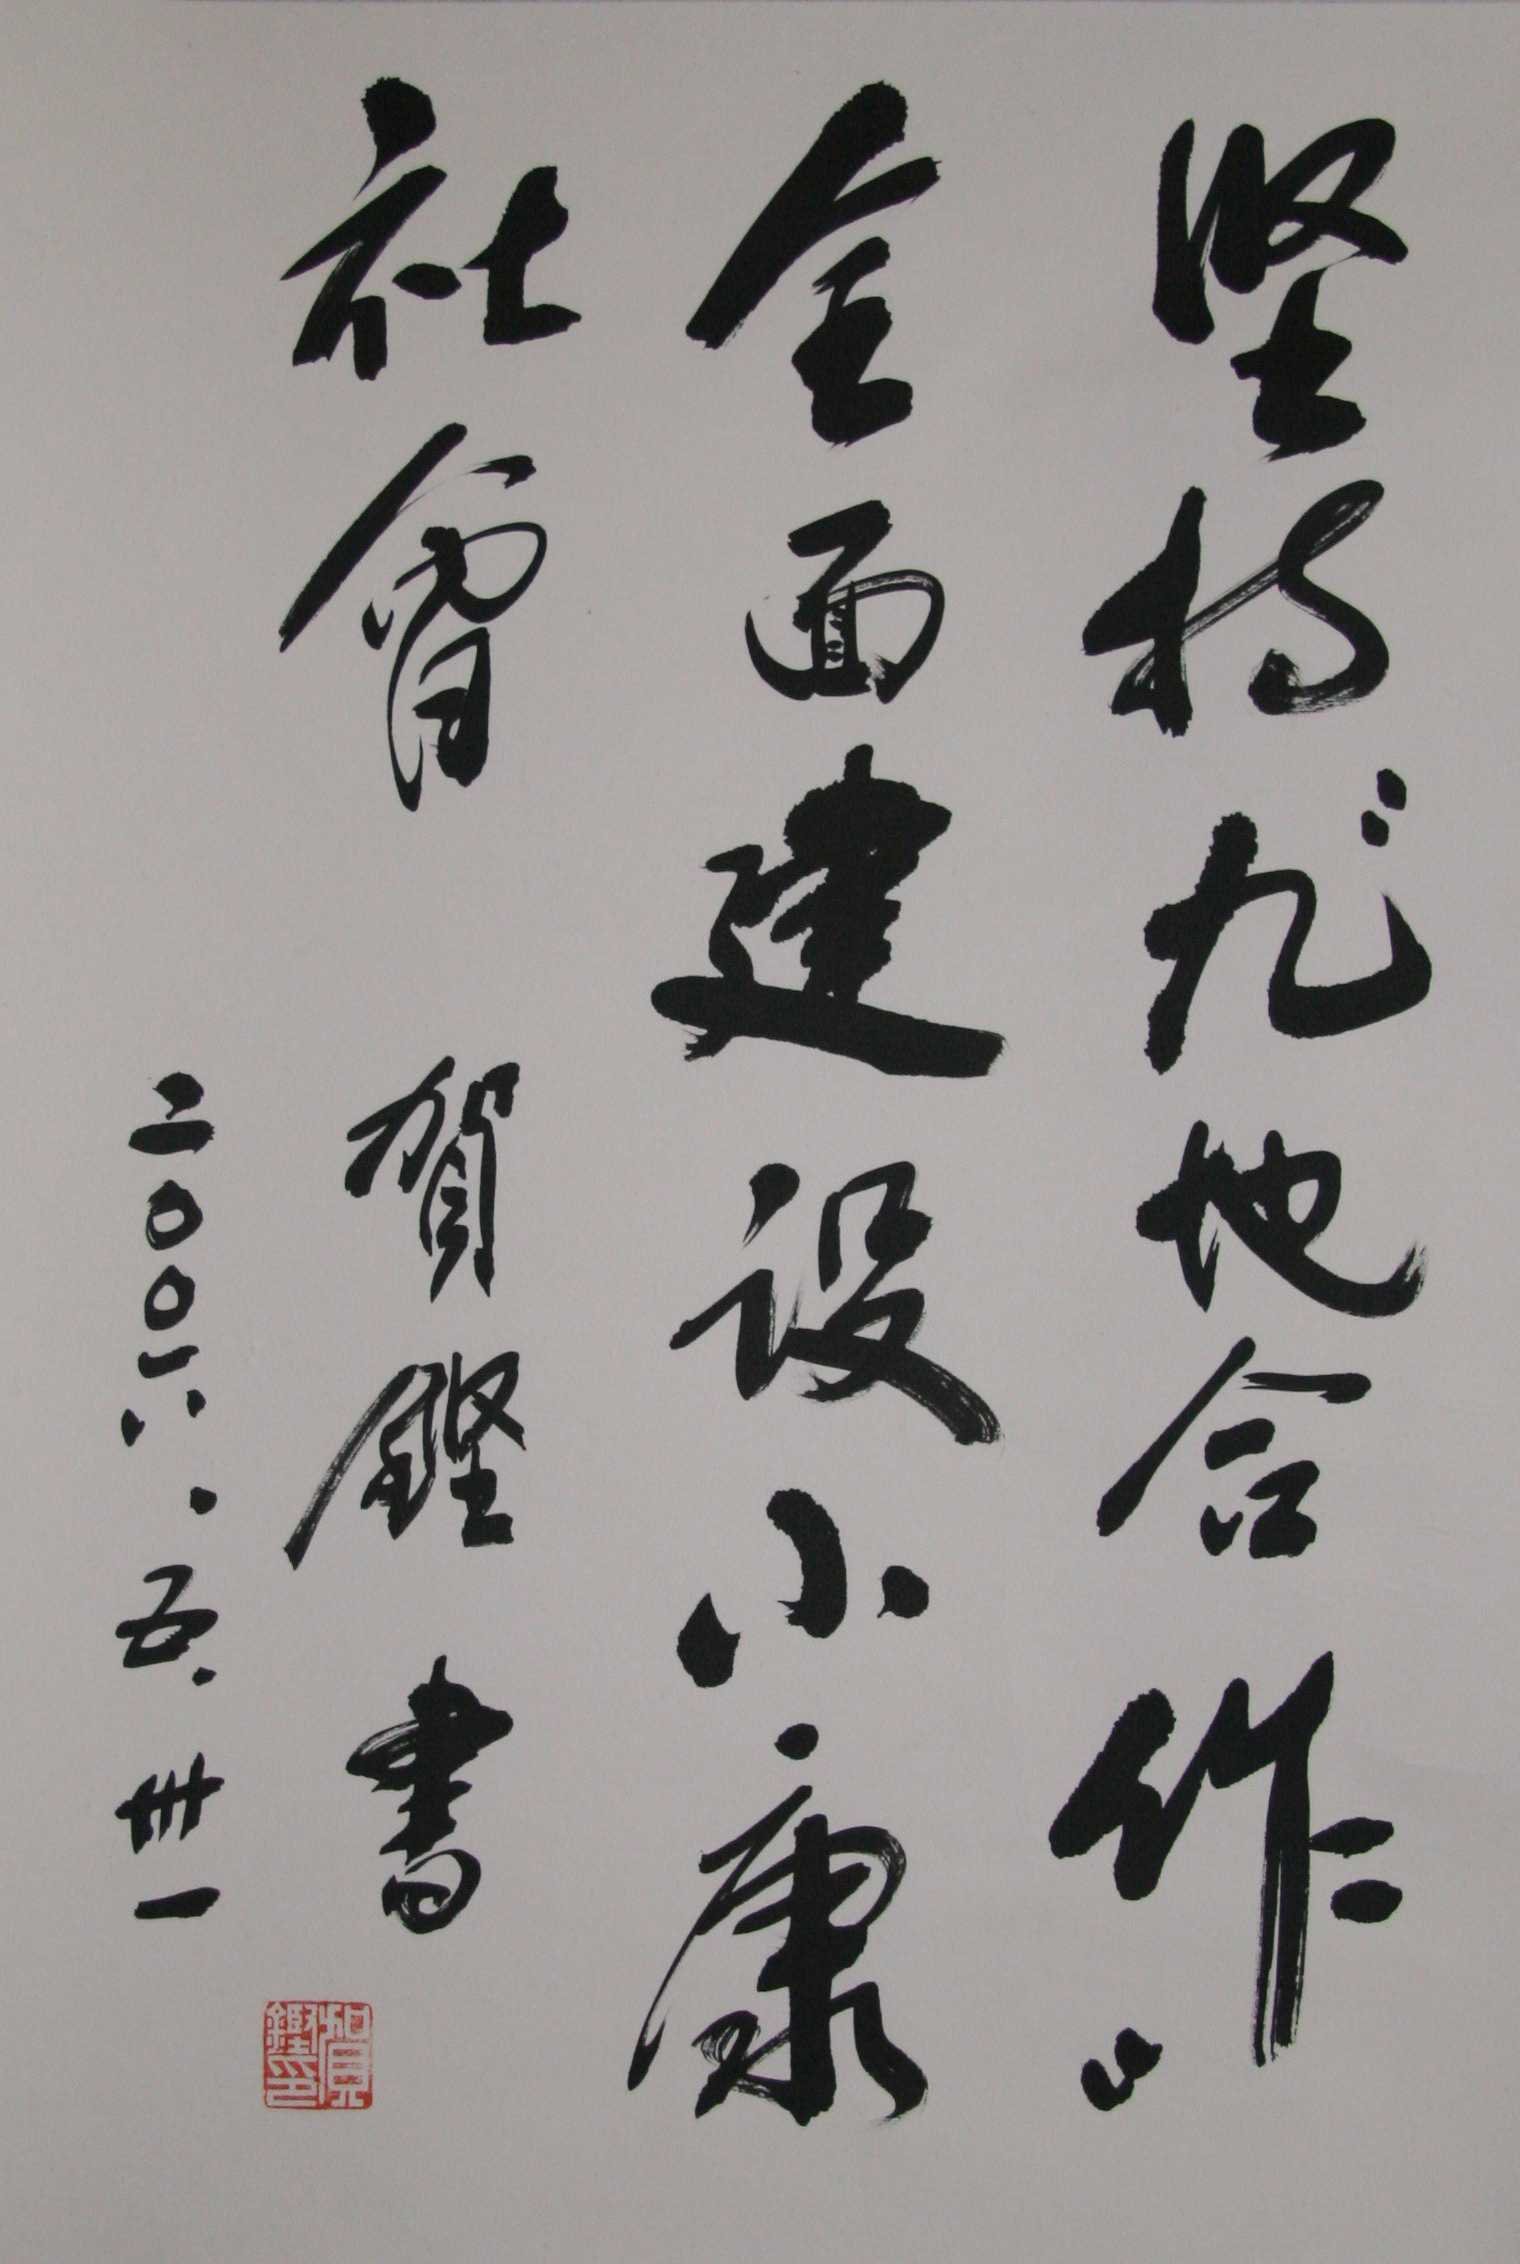 坚持地合作，
全面建设小康
社會 賀鏗書
二〇〇六.五.卅一
賀鏗印